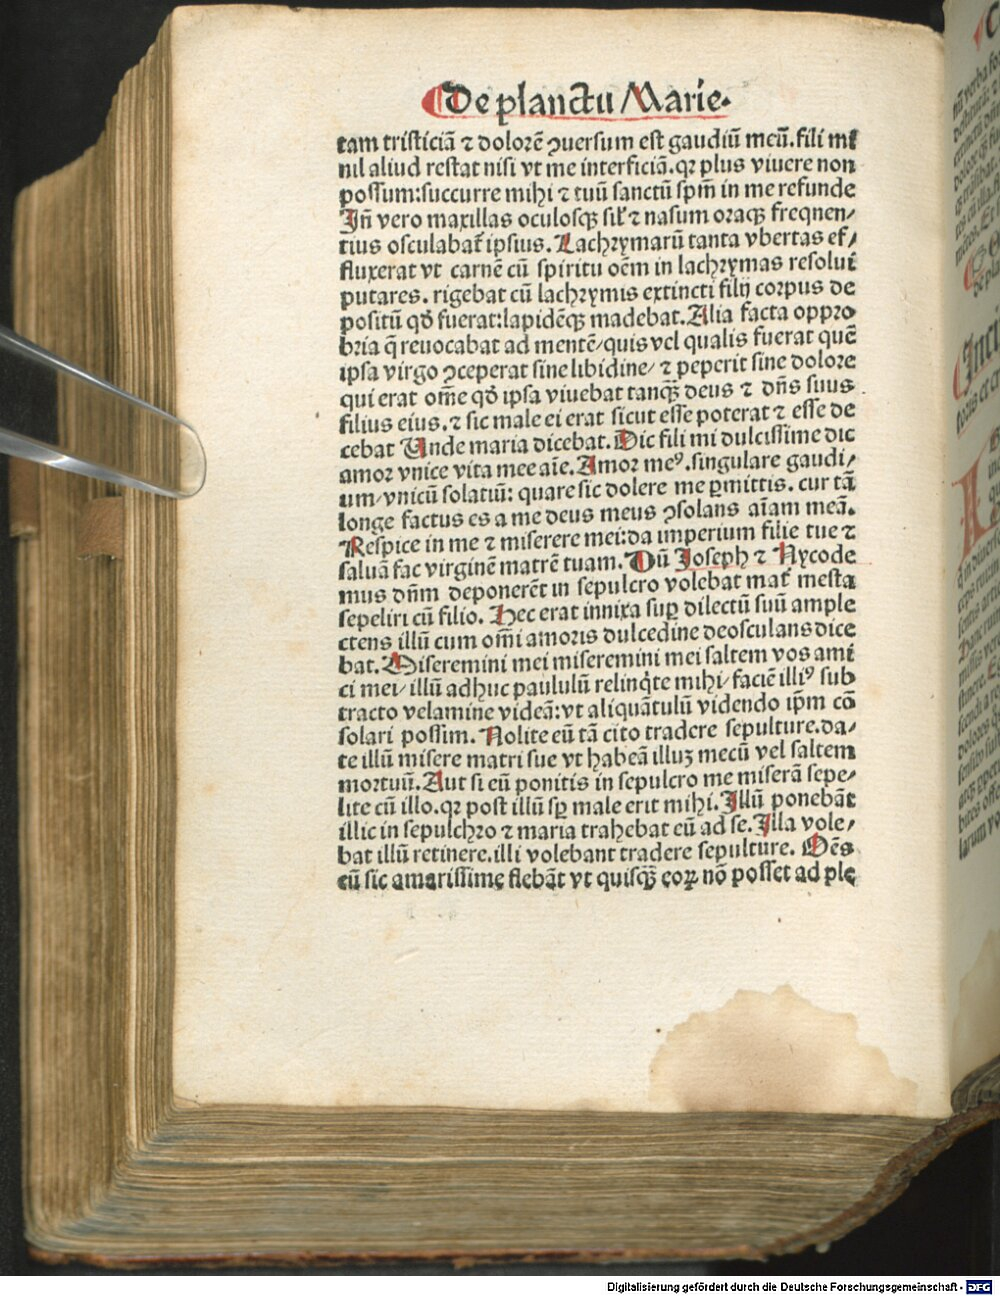 De planctu Marie.
tam tristiciã ⁊ dolorẽ ꝯuersum est gaudiũ meũ. fili mi
nil aliud restat nisi vt me interficiã. qꝛ plus viuere non
possum: succurre mihi ⁊ tuũ sanctũ spm̃ in me refunde
Jñ vero maxillas oculosqꝫ silꝛ̃ ⁊ nasum oraqꝫ freqnen/
tius osculabat̃ ipsius. Lachrymarũ tanta vbertas ef/
fluxerat vt carnẽ cũ spiritu oẽm in lachrymas resolui
putares. rigebat cũ lachrymis extincti filij corpus de
positũ qđ fuerat: lapidẽqꝫ madebat. Alia facta oppro
bria q̃ reuocabat ad mentẽ/ quis vel qualis fuerat quẽ
ipsa virgo ꝯceperat sine libidine/ ⁊ peperit sine dolore
qui erat om̃e qđ ipsa viuebat tanqꝫ̃ deus ⁊ dñs suus
filius eius. ⁊ sic male ei erat sicut esse poterat ⁊ esse de
cebat Unde maria dicebat. Dic fili mi dulcissime dic
amor vnice vita mee aĩe. Amor meꝰ. singulare gaudi/
um/ vnicũ solatiũ: quare sic dolere me ꝑmittis. cur tã
longe factus es a me deus meus ꝯsolans aĩam meã.
Respice in me ⁊ miserere mei: da imperium filie tue ⁊
saluã fac virginẽ matrẽ tuam. Dũ Joseph ⁊ Nycode
mus dñm deponerẽt in sepulcro volebat mat̃ mesta
sepeliri cũ filio. Hec erat innixa suꝑ dilectũ suũ ample
ctens illũ cum om̃i amoris dulcedine deosculans dice
bat. Miseremini mei miseremini mei saltem vos ami
ci mei/ illũ adhuc paululũ relinq̇te mihi/ faciẽ illiꝰ sub
tracto velamine videã: vt aliquãtulũ videndo ip̃m cõ
solari possim. Nolite eũ tã cito tradere sepulture. da/
te illũ misere matri sue vt habeã illuꝫ mecũ vel saltem
mortuũ. Aut si eũ ponitis in sepulcro me miserã sepe/
lite cũ illo. qꝛ post illũ sꝑ male erit mihi. Jllũ ponebãt
illic in sepulchro ⁊ maria trahebat eũ ad se. Jlla vole/
bat illũ retinere. illi volebant tradere sepulture. Oẽs
eũ sic amarissime flebãt vt quisqꝫ̃ eoꝝ nõ posset ad ple
Digitalisierung gefördert durch die Deutsche Forschungsgemeinschaft - DFG